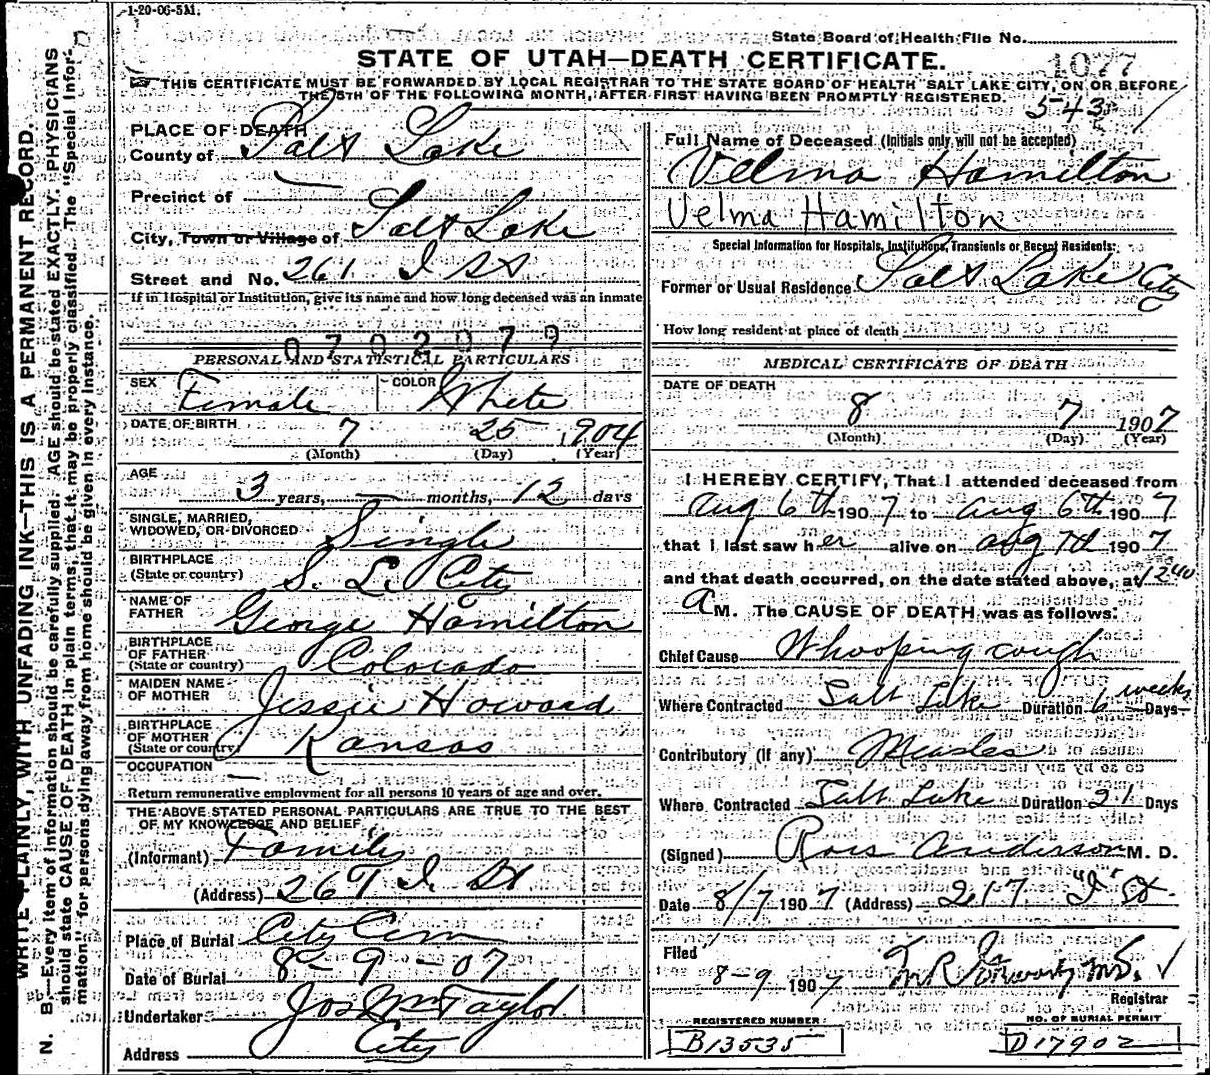 1-20-06-5M.
State Board of Health File No.
1077
STATE OF UTAH—DEATH CERTIFICATE.
THIS CERTIFICATE MUST BE FORWARDED BY LOCAL REGISTRAR TO THE STATE BOARD OF HEALTH SALT LAKE CITY, ON OR BEFORE
THE 5TH OF THE FOLLOWING MONTH, AFTER FIRST HAVING BEEN PROMPTLY REGISTERED.
543
WRITE PLAINLY, WITH UNFADING INK—THIS IS A PERMANENT RECORD.
N. B.—Every item of information should be carefully supplied. AGE should be stated EXACTLY. PHYSICIANS
should state CAUSE OF DEATH in plain terms, that it may be properly classified. The "Special Infor-
mation" for persons dying away from home should be given in every instance.
PLACE OF DEATH
County of Salt Lake
Precinct of
City, Town or Village of Salt Lake
Street and No. 261 I St
If in Hospital or Institution, give its name and how long deceased was an inmate
0702079
PERSONAL AND STATISTICAL PARTICULARS
SEX Female COLOR White
DATE OF BIRTH 7 25 1904
(Month) (Day) (Year)
AGE 3 years, — months, 12 days
SINGLE, MARRIED,
WIDOWED, OR DIVORCED Single
BIRTHPLACE
(State or country) S. L. City
NAME OF
FATHER George Hamilton
BIRTHPLACE
OF FATHER
(State or country) Colorado
MAIDEN NAME
OF MOTHER Jessie Howard
BIRTHPLACE
OF MOTHER
(State or country) Kansas
OCCUPATION —
Return remunerative employment for all persons 10 years of age and over.
THE ABOVE STATED PERSONAL PARTICULARS ARE TRUE TO THE BEST
OF MY KNOWLEDGE AND BELIEF,
(Informant) Family
(Address) 267 I St
Place of Burial City Cem
Date of Burial 8-9-07
Undertaker Jos Wm Taylor
Address City
Full Name of Deceased (Initials only will not be accepted)
Velma Hamilton
Velma Hamilton
Special Information for Hospitals, Institutions, Transients or Recent Residents:
Former or Usual Residence Salt Lake City
How long resident at place of death
MEDICAL CERTIFICATE OF DEATH
DATE OF DEATH
8 7 1907
(Month) (Day) (Year)
I HEREBY CERTIFY, That I attended deceased from
Aug 6th 1907 to Aug 6th 1907
that I last saw her alive on Aug 7th 1907
and that death occurred, on the date stated above, at 1240
A M. The CAUSE OF DEATH was as follows:
Chief Cause Whooping cough
Where Contracted Salt Lake Duration 6 weeks Days
Contributory (if any) Measles
Where Contracted Salt Lake Duration 21 Days
(Signed) Ross Anderson M. D.
Date 8/7 1907 (Address) 217 "I" St
Filed
8-9 1907
Registrar
REGISTERED NUMBER
B13535
NO. OF BURIAL PERMIT
D17902